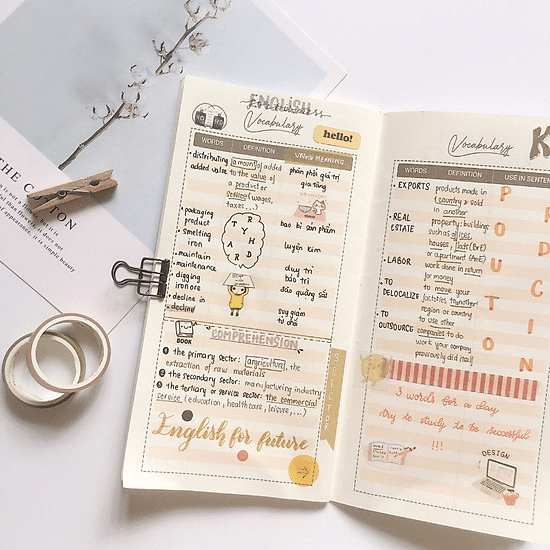 THE COTTON
ENGLISH
For business
Vocabulary
hello!
WORDS DEFINITION VNese MEANING
• distributing a mount of added phân phối giá trị
added value to the value of gia tăng
a product or
service (wages,
taxes,...)
• packaging bao bì sản phẩm
product
• smelting luyện kim
iron
TRY
HARD
• maintain duy trì
• maintenance bảo trì
• digging đào quặng sắt
iron ore
• decline in suy giảm
• declind từ chối
BOOK
COMPREHENSION
① the primary sector: argriculture, the
extraction of raw materials
② the secondary sector: manufacturing industry
③ the tertiary or service sector: the commercial
service (education, healthcare, leisure,...)
3 SECTOR
English for future
Vocabulary
K
WORDS DEFINITION USE IN SENTEN
• EXPORTS products made in
1 country & sold
in another
• REAL property: buildings
ESTATE such as offices,
houses, flats (BrE)
or apartment (AmE)
• LABOR work done in return
for money
• TO to move your
DELOCALIZE factories to another
region or country
• TO to use other
OUTSOURCE companies to do
work your company
previously did itself
PRODUCTION
3 words for a day
try to study to be successful
!!!
DESIGN